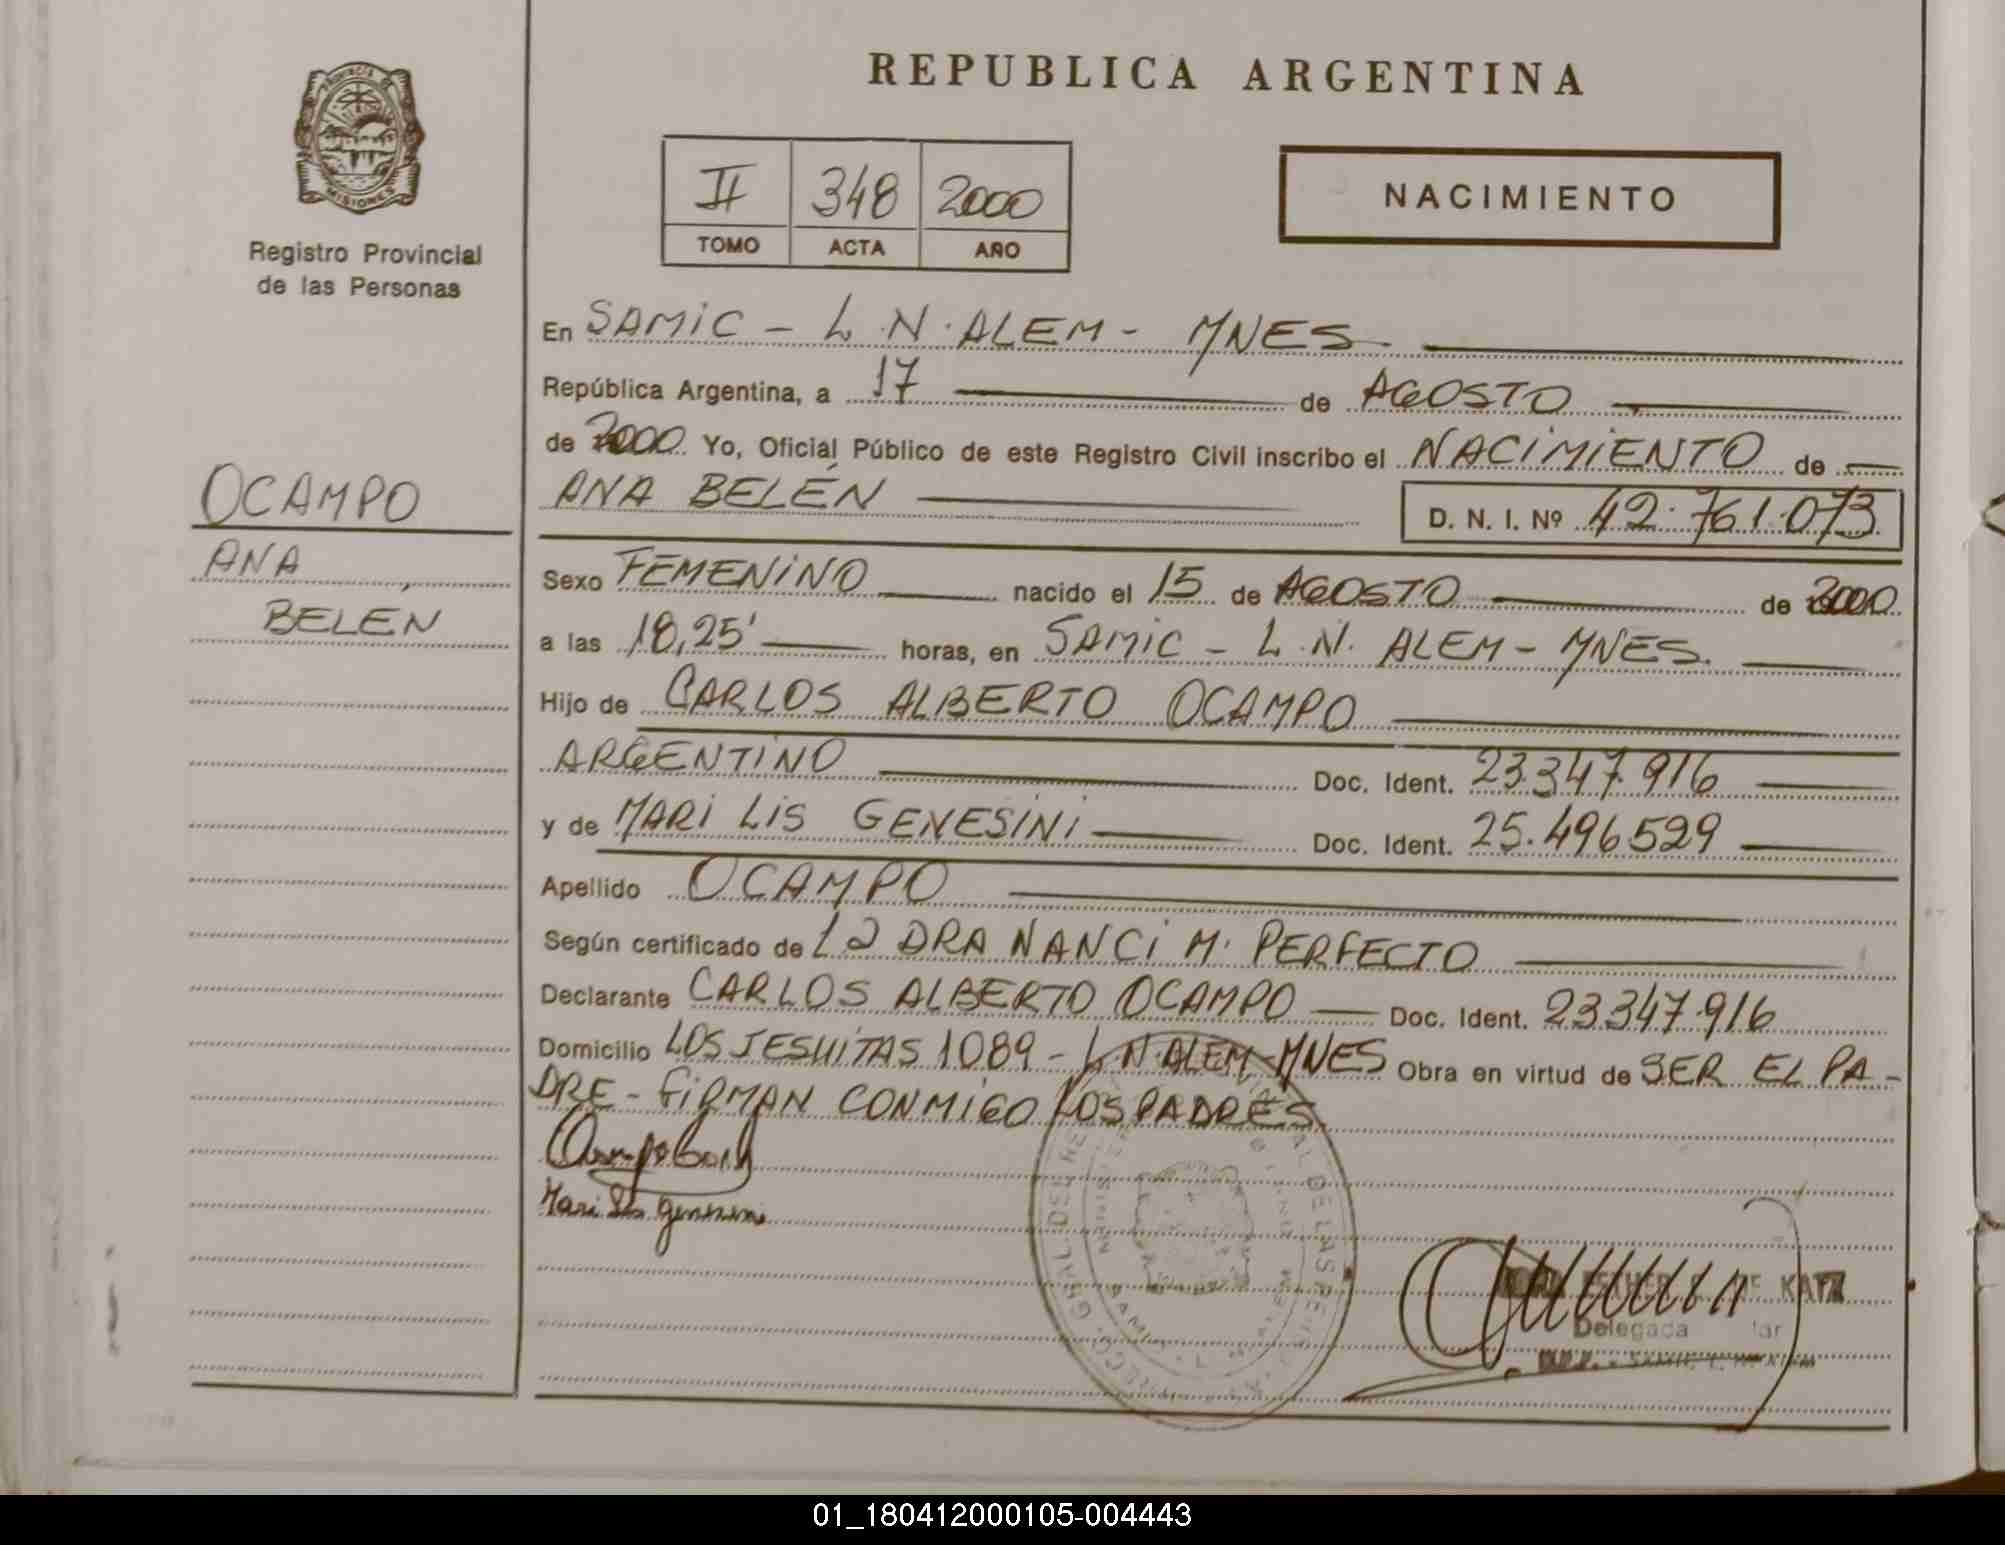 REPUBLICA ARGENTINA
PROVINCIA DE
MISIONES
Registro Provincial
de las Personas
II 348 2000
TOMO ACTA AÑO
NACIMIENTO
En SAMIC - L.N. ALEM - MNES
República Argentina, a 17 de AGOSTO
de 2000 Yo, Oficial Público de este Registro Civil inscribo el NACIMIENTO de
ANA BELÉN D. N. I. Nº 42.761.073
OCAMPO
ANA
BELEN
Sexo FEMENINO nacido el 15 de AGOSTO de 2000
a las 18,25' horas, en SAMIC - L.N. ALEM - MNES.
Hijo de CARLOS ALBERTO OCAMPO
ARGENTINO Doc. Ident. 23.347.916
y de MARI LIS GENESINI Doc. Ident. 25.496529
Apellido OCAMPO
Según certificado de La DRA NANCI M. PERFECTO
Declarante CARLOS ALBERTO OCAMPO Doc. Ident. 23.347.916
Domicilio LOS JESUITAS 1089 - L.N. ALEM - MNES Obra en virtud de SER EL PA-
DRE - FIRMAN CONMIGO LOS PADRES
Mari Lis Genesini
ESTHER DE KATZ
Delegada
SAMIC L. N. ALEM
01_180412000105-004443